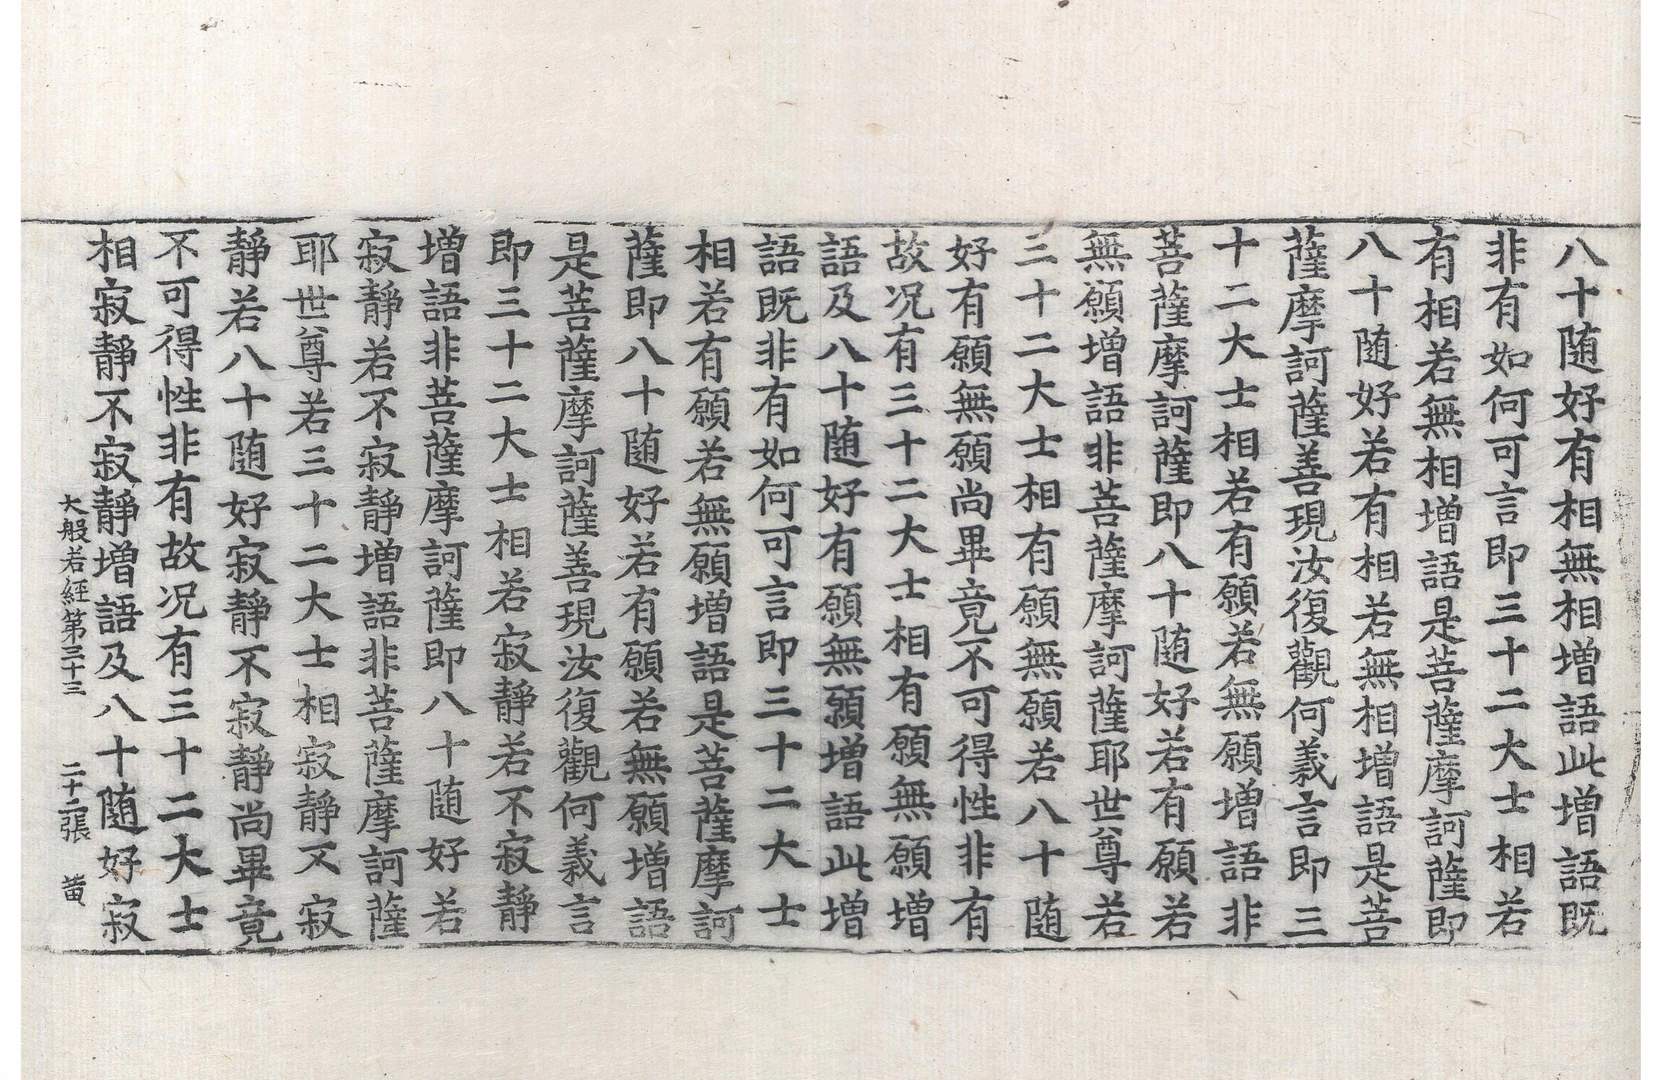 八十随好有相無相增語此增語既
非有如何可言即三十二大士相若
有相若無相增語是菩薩摩訶薩即
八十随好若有相若無相增語是菩
薩摩訶薩善現汝復觀何義言即三
十二大士相若有願若無願增語非
菩薩摩訶薩即八十随好若有願若
無願增語非菩薩摩訶薩耶世尊若
三十二大士相有願無願若八十随
好有願無願尚畢竟不可得性非有
故况有三十二大士相有願無願增
語及八十随好有願無願增語此增
語既非有如何可言即三十二大士
相若有願若無願增語是菩薩摩訶
薩即八十随好若有願若無願增語
是菩薩摩訶薩善現汝復觀何義言
即三十二大士相若寂靜若不寂靜
增語非菩薩摩訶薩即八十随好若
寂靜若不寂靜增語非菩薩摩訶薩
耶世尊若三十二大士相寂靜不寂
靜若八十随好寂靜不寂靜尚畢竟
不可得性非有故况有三十二大士
相寂靜不寂靜增語及八十随好寂
大般若經第三十三 二十二張 黄